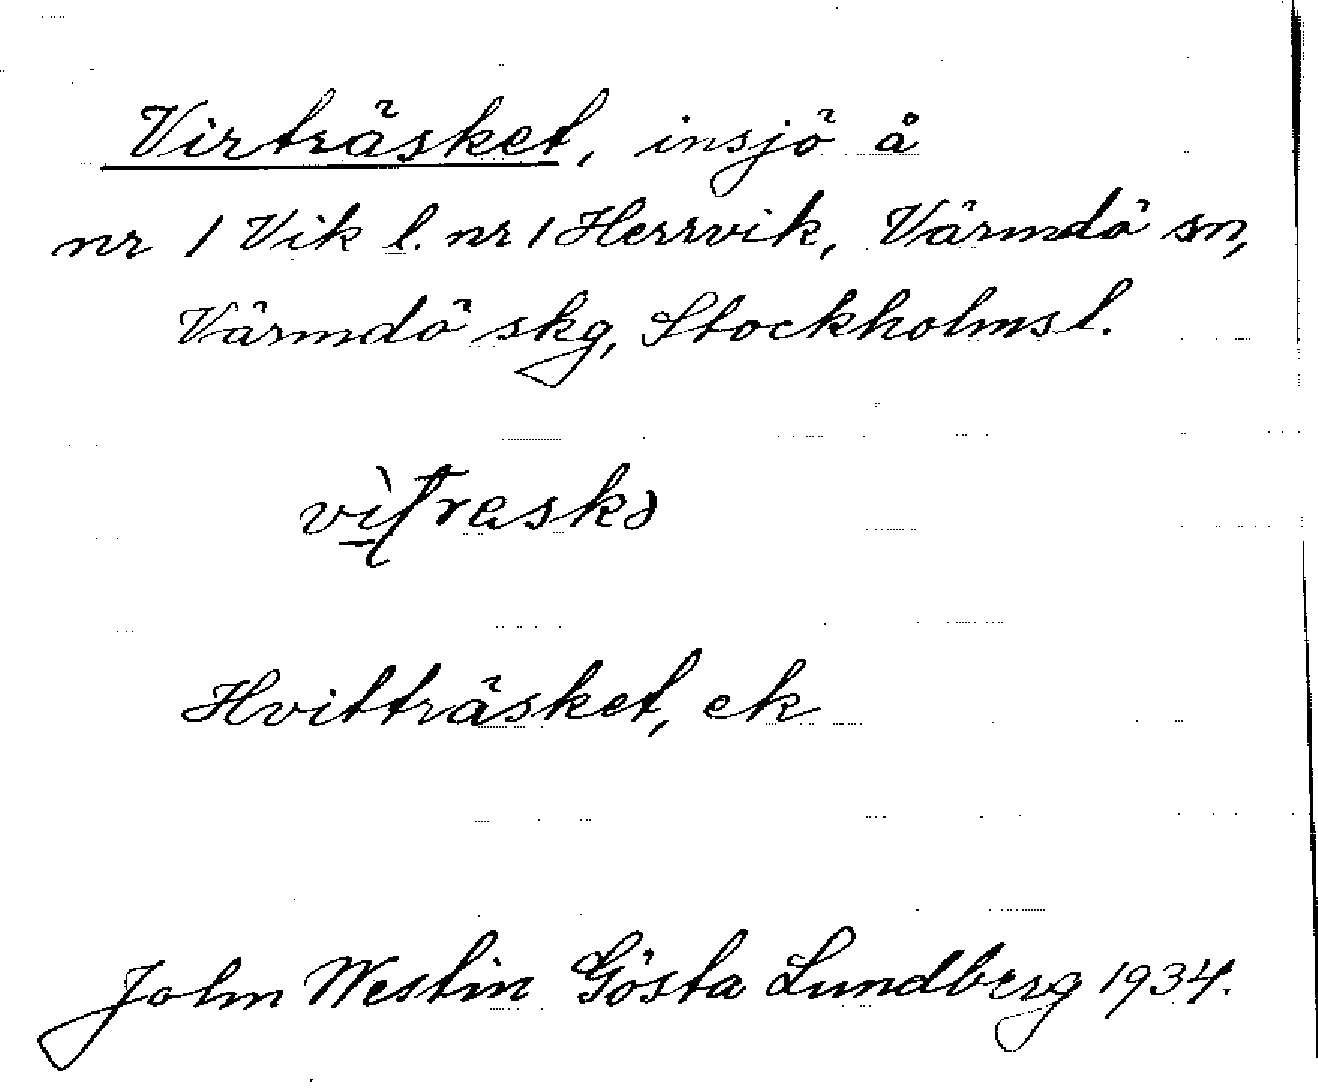 Virträsket, insjö å
nr 1 Vik l. nr 1 Herrvik, Värmdö sn,
Värmdö skg, Stockholms l.
Hvitträsket, ek
John Westin Gösta Lundberg 1934.